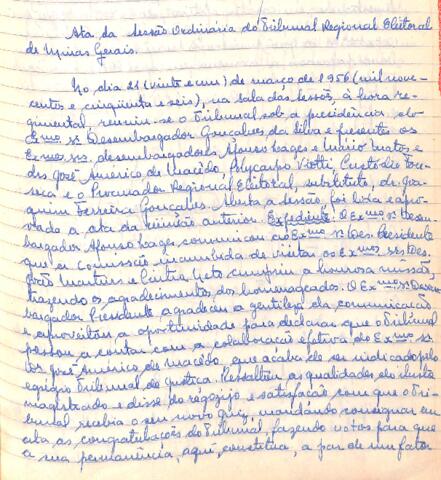 Ata da Sessão Ordinária do Tribunal Regional Eleitoral
de Minas Gerais.
No dia 21 (vinte e um) de março de 1956 (mil nove-
centos e cinqüenta e seis), na sala das sessões, à hora re-
gimental, reuniu-se o Tribunal sob a presidência do
Exmo. Sr. Desembargador Gonçalves da Silva e presentes os
Exmos. srs. desembargadores Afonso Lages e Mário Matos e
drs. José Américo de Macêdo, Polycarpo Viotti, Custódio
e o Procurador Regional Eleitoral, substituto, dr. Joa-
quim Ferreira Gonçalves. Aberta a sessão, foi lida e apro-
vada a ata da reunião anterior. Expediente: O Exmo. Sr. Desem-
bargador Afonso Lages comunicou ao Exmo. Sr. Des. Presidente
que a Comissão incumbida de visitar os Exmos. srs. Des.
João Martins e Cintra Neto cumpriu a honrosa missão,
trazendo os agradecimentos dos homenageados. O Exmo. Sr. Desem-
bargador Presidente agradeceu a gentileza da comunicação
e aproveitou a oportunidade para declarar que o Tribunal
passou a contar com a colaboração efetiva do Exmo. Sr.
dr. José Américo de Macêdo, que acaba de ser indicado pelo
egrégio Tribunal de Justiça. Ressaltou as qualidades do ilustre
magistrado e disse do regozijo e satisfação com que o Tri-
bunal recebia o seu novo Juiz, mandando consignar em
ata as congratulações do Tribunal, fazendo votos para que
a sua permanência, aqui, constitua, a par de um fator